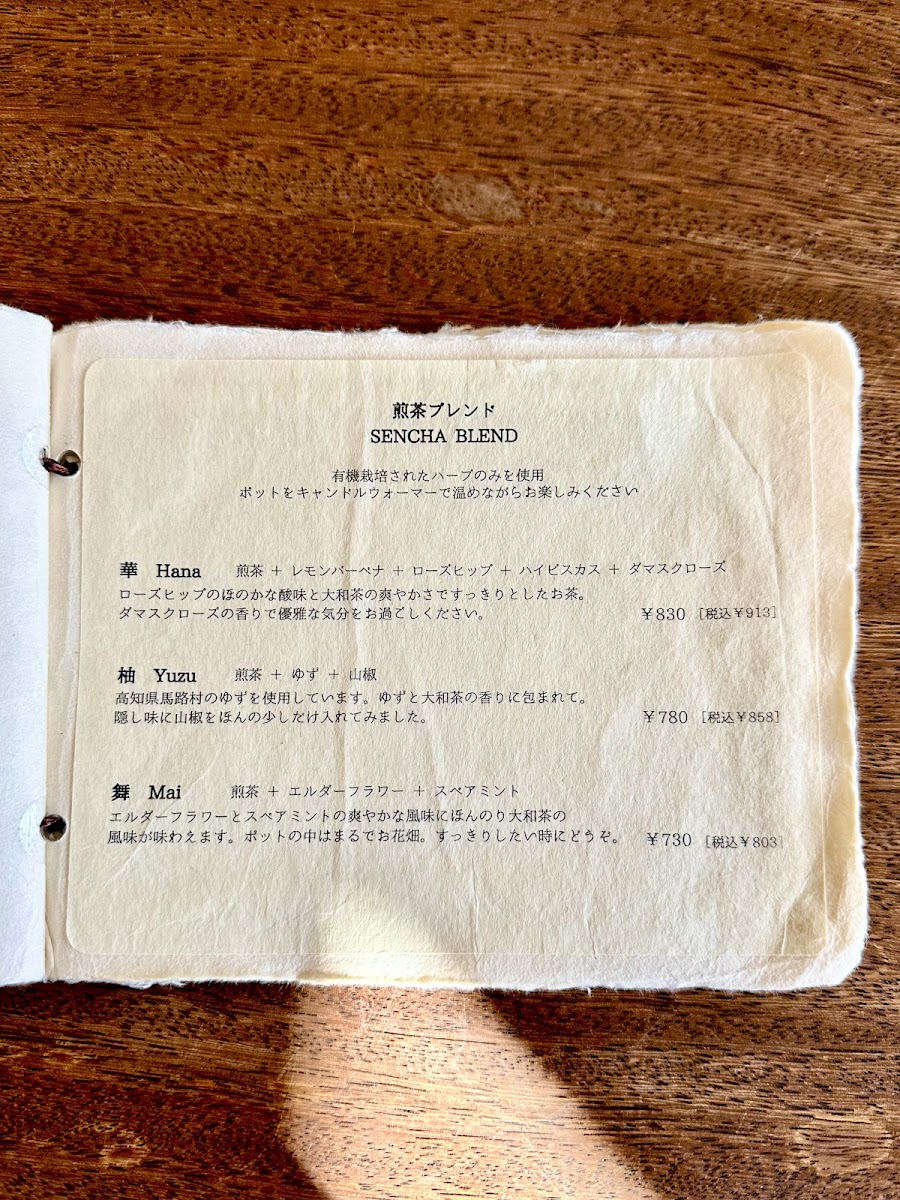 煎茶ブレンド
SENCHA BLEND
有機栽培されたハーブのみを使用
ポットをキャンドルウォーマーで温めながらお楽しみください
華 Hana 煎茶 + レモンバーベナ + ローズヒップ + ハイビスカス + ダマスクローズ
ローズヒップのほのかな酸味と大和茶の爽やかさですっきりとしたお茶。
ダマスクローズの香りで優雅な気分をお過ごしください。 ¥830 [税込¥913]
柚 Yuzu 煎茶 + ゆず + 山椒
高知県馬路村のゆずを使用しています。ゆずと大和茶の香りに包まれて。
隠し味に山椒をほんの少しだけ入れてみました。 ¥780 [税込¥858]
舞 Mai 煎茶 + エルダーフラワー + スペアミント
エルダーフラワーとスペアミントの爽やかな風味にほんのり大和茶の
風味が味わえます。ポットの中はまるでお花畑。すっきりしたい時にどうぞ。 ¥730 [税込¥803]